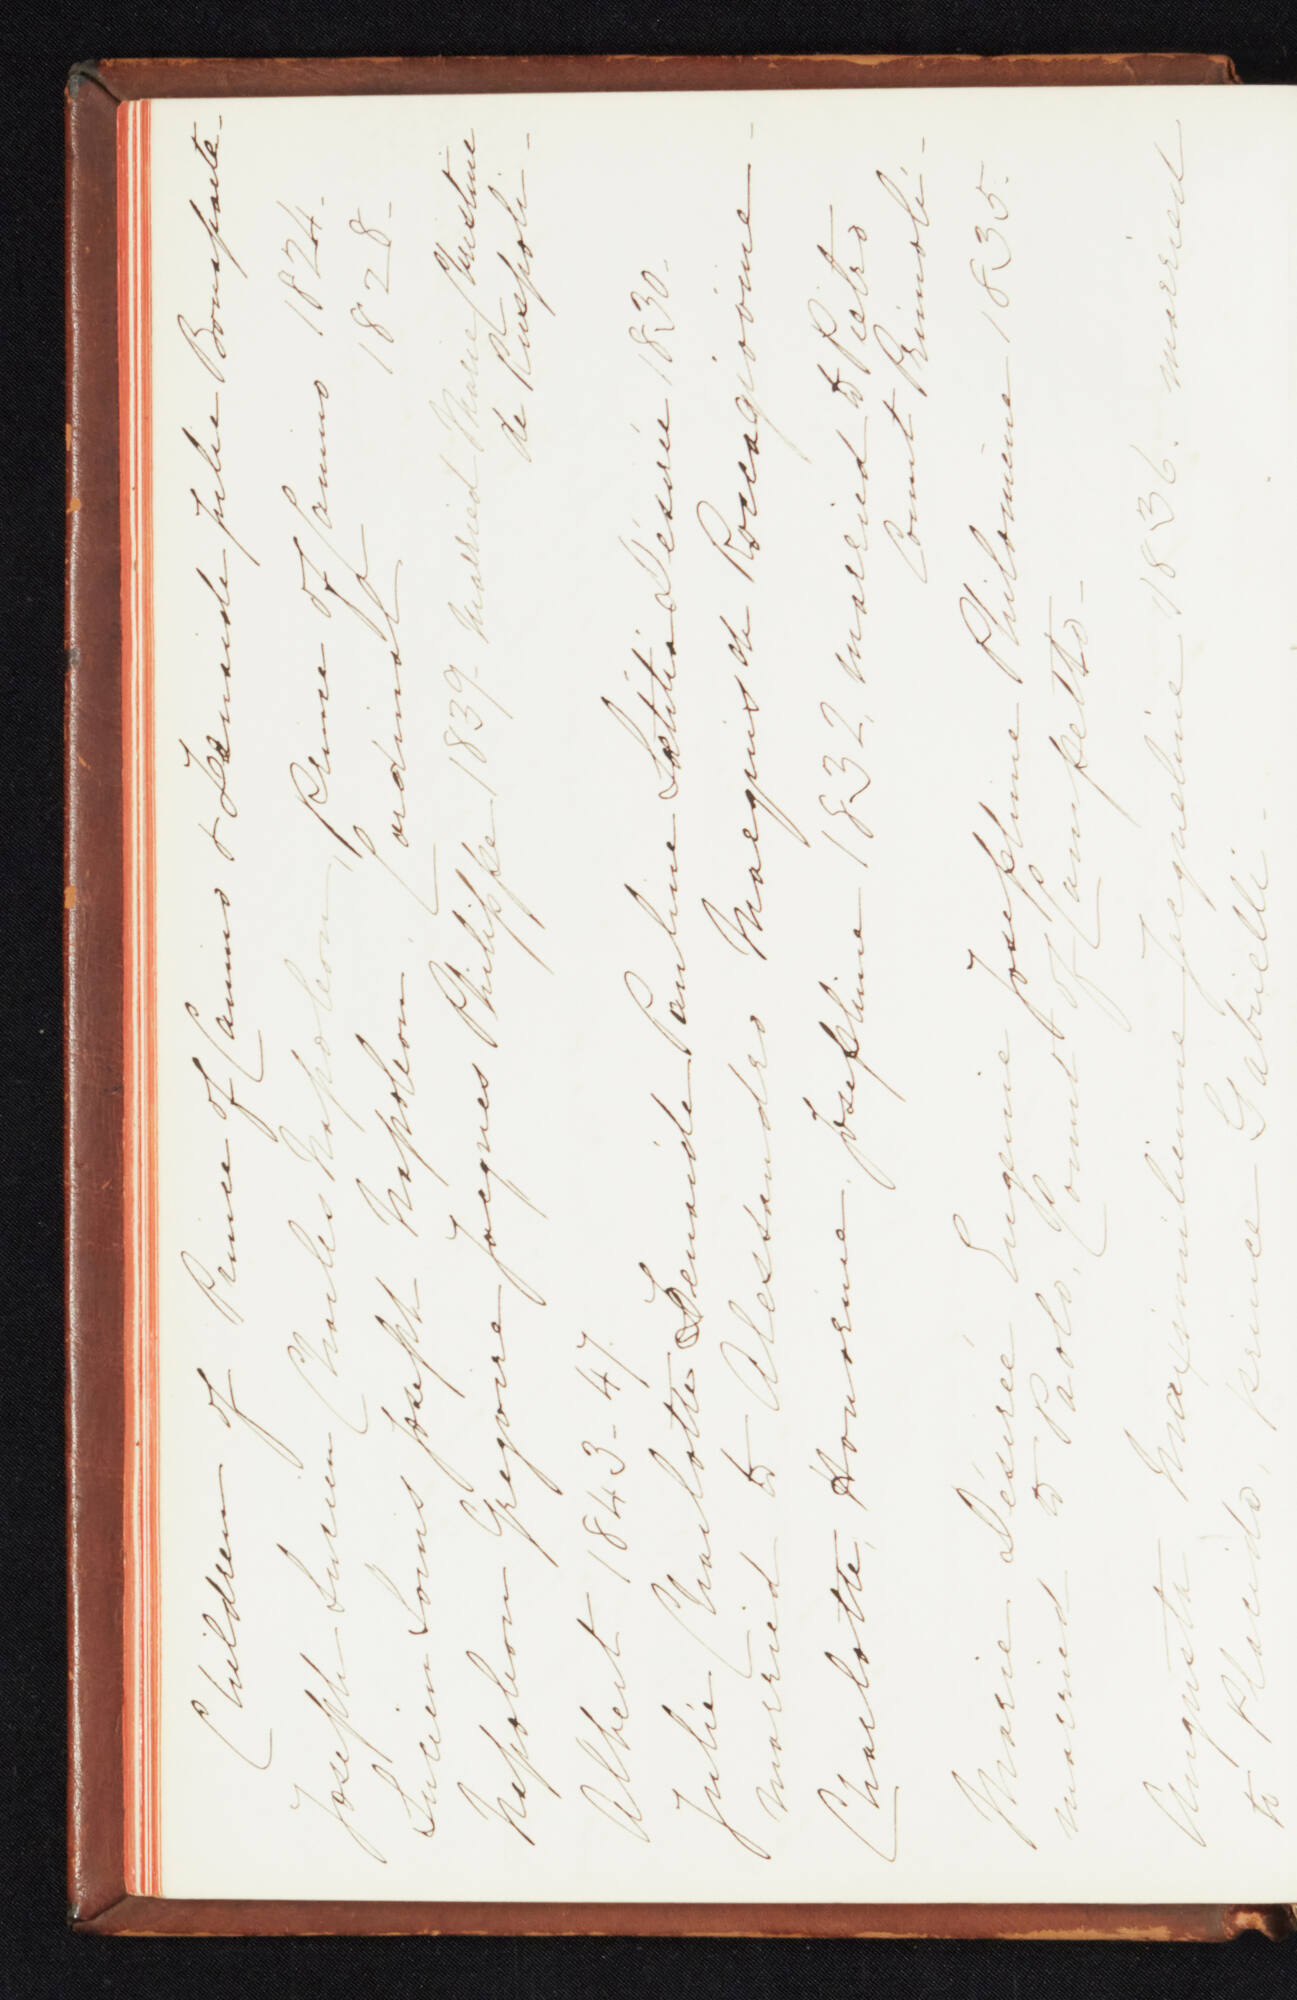 Children of Prince of Canino & Zenaide Julie Bonaparte -
Joseph Lucien Charles Napoleon, Prince of Canino 1824 -
Lucien Louis Joseph Napoleon, Cardinal 1828 -
Napoleon Gregoire Jacques Philippe 1839 - married Marie Christine
de Ruspoli -
Albert 1843 - 47.
Julie Charlotte Zenaide Pauline Lætitia Désirée 1830 -
married to Alessandro Marquis de Roccagiovine -
Charlotte, Honorine, Josephine 1832, married to Pietro
Count Primoli -
Marie Désirée Eugenie Josephine Philomene 1835.
married to Paolo, Count of Campello -
Augusta Maximilienne Jacqueline 1836. married
to Placido, prince Gabrielli -